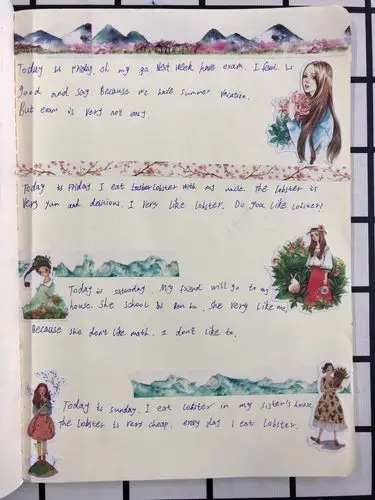 Today is friday. oh my ga. Next week have exam. I feel is
good and say. Because we have summer vacation.
But exam is very not easy.
Today is Friday I eat lobster with my uncle. The lobster is
very yum and delicious. I very like lobster. Do you like lobster?
Today is saturday. My friend will go to my
house. She school is Ren he. She very like me.
Because she don't like math. I don't like to.
Today is sunday. I eat lobster in my sister's house.
The lobster is very cheap. every play I eat lobster.